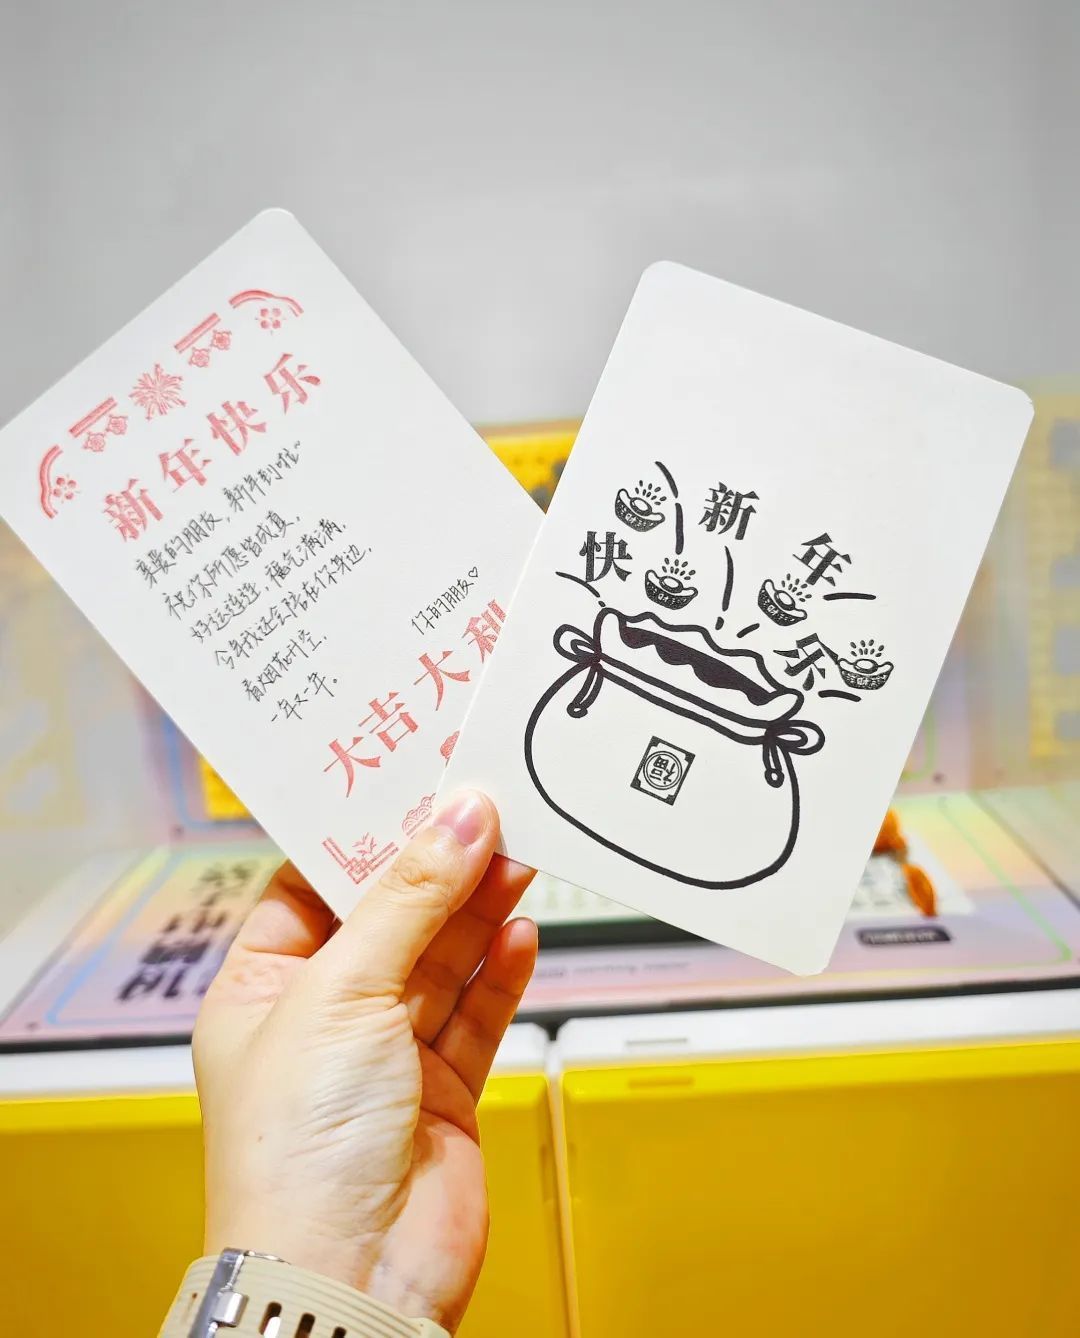 新年快乐
亲爱的朋友，新年到啦~
祝你所愿皆成真，
好运连连，福气满满，
今年我还会陪在你身边，
看烟花升空，
一年又一年。
你的朋友♡
大吉大利
新
年
快
乐
福